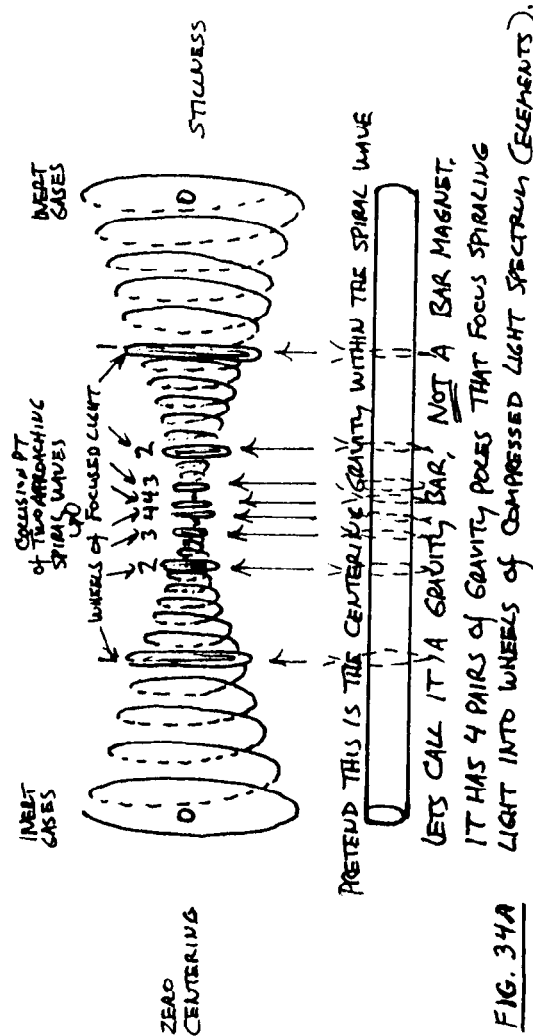 INERT
GASES
COLLISION PT
OF TWO APPROACHING
SPIRAL WAVES
INERT
GASES
WHEELS OF FOCUSED LIGHT
1
2
3
4
4
3
2
1
0
0
ZERO
CENTERING
STILLNESS
PRETEND THIS IS THE CENTERING GRAVITY WITHIN THE SPIRAL WAVE
LETS CALL IT A GRAVITY BAR, NOT A BAR MAGNET.
IT HAS 4 PAIRS OF GRAVITY POLES THAT FOCUS SPIRALING
LIGHT INTO WHEELS OF COMPRESSED LIGHT SPECTRUM (ELEMENTS).
FIG. 34A